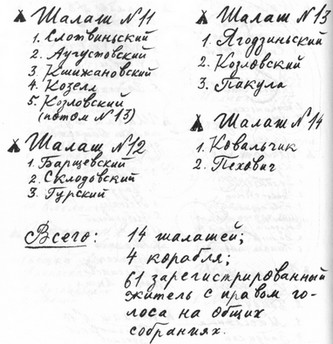 Шалаш №11
1. Слотвиньский
2. Аугустовский
3. Кшижановский
4. Козелл
5. Козловский
(потом №13)
Шалаш №12
1. Барщевский
2. Склодовский
3. Гурский
Шалаш №13
1. Ягодзиньский
2. Козловский
3. Пакула
Шалаш №14
1. Ковальчик
2. Пехович
Всего: 14 шалашей;
4 корабля;
61 зарегистрированный
житель с правом го-
лоса на общих
собраниях.